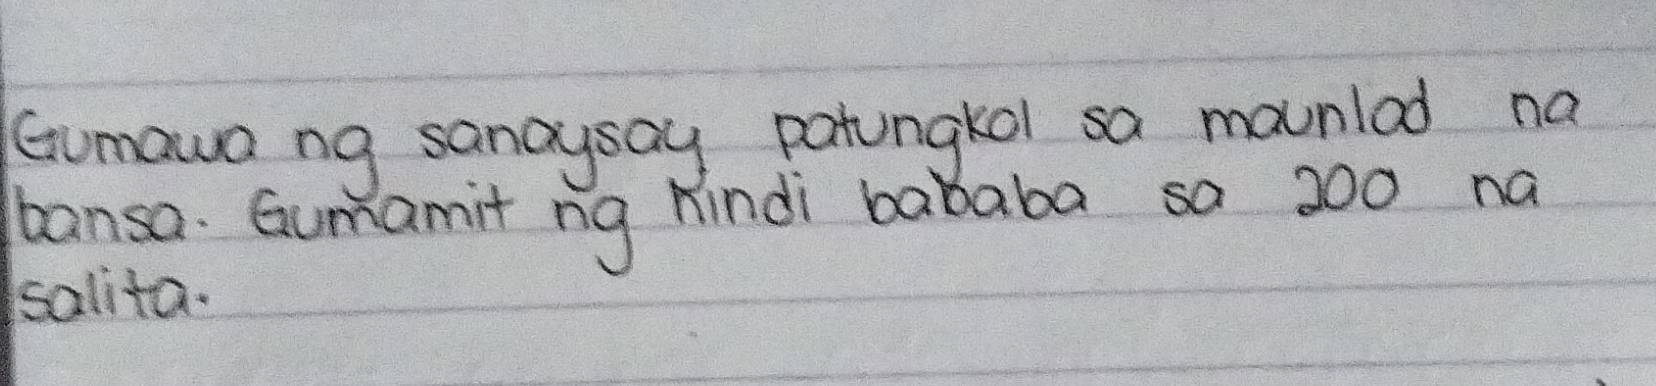 Gumawa ng sanaysay patungkol sa maunlad na
bansa. Gumamit ng hindi bababa sa 200 na
salita.